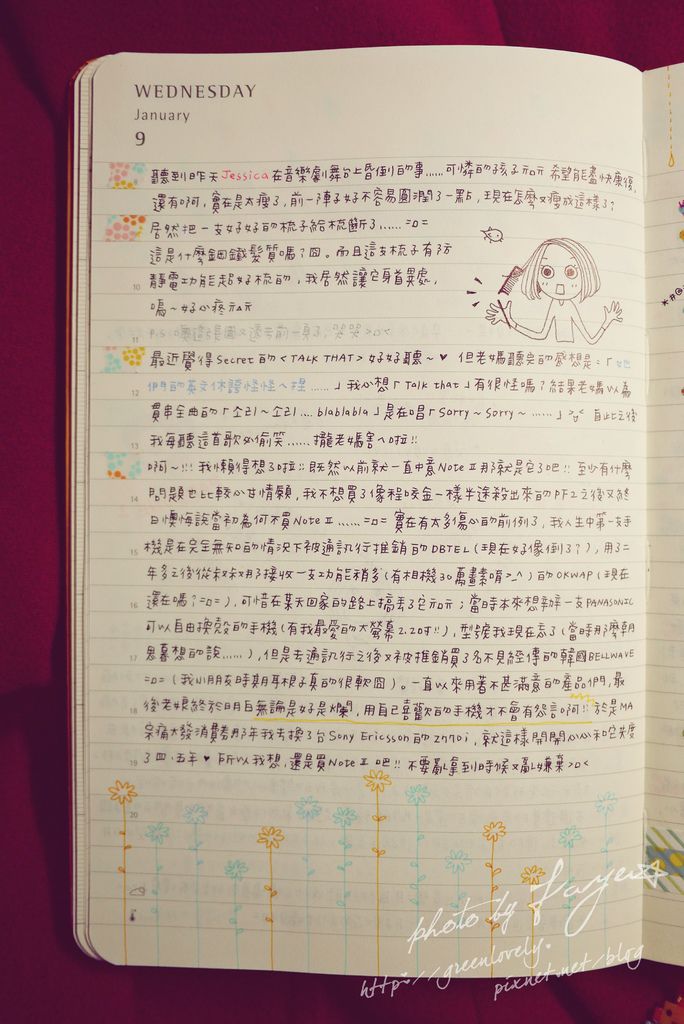 WEDNESDAY
January
9
聽到昨天Jessica在音樂劇舞台上昏倒的事......可憐的孩子ㄇㄇ 希望能盡快康復,
還有啊, 實在是太瘦了, 前一陣子好不容易圓潤了一點, 現在怎麼又瘦成這樣了?
居然把一支好好的梳子給梳斷了...... =口=
這是什麼鋼鐵髮質嗎?囧。而且這支梳子有防
10 靜電功能超好梳的, 我居然讓它身首異處,
嗚~好心疼ㄇㄇ
11
最近覺得Secret的<TALK THAT>好好聽~♥ 但老媽聽完的感想是:「她
12 們的英文休誇怪怪ㄟ捏......」我心想「Talk that」有很怪嗎?結果老媽以為
貫串全曲的「소리~소리... blablabla」是在唱「Sorry~Sorry~......」>"< 自此之後
13 我每聽這首歌必偷笑......攏老媽害ㄟ啦!!
啊~!!! 我懶得想了啦!! 既然以前就一直中意Note II那就是它了吧!! 至少有什麼
14 問題也比較心甘情願, 我不想買了像程咬金一樣半途殺出來的PF2之後又終
日懊悔說當初為何不買Note II...... =口= 實在有太多傷心的前例了, 我人生中第一支手
15 機是在完全無知的情況下被通訊行推銷的DBTEL(現在好像倒了?), 用了二
年多之後從叔叔那接收一支功能稍多(有相機30萬畫素唷>_^)的OKWAP(現在
16 還在嗎? =口=), 可惜在某天回家的路上搞丟了它ㄇㄇ; 當時本來想辦一支PANASONIC
可以自由換殼的手機(有我最愛的大螢幕2.2吋!!), 型號我現在忘了(當時那麼朝
17 思暮想的說......), 但是去通訊行之後又被推銷買了名不見經傳的韓國BELLWAVE
=口= (我小朋友時期耳根子真的很軟囧)。一直以來用著不甚滿意的產品們, 最
18 後老娘終於明白無論是好是爛, 用自己喜歡的手機才不會有怨言啊!! 於是MA
宗痛大發消費券那年我去換了台Sony Ericsson的Z770i, 就這樣開開心心和它共度
19 了四、五年♥ 所以我想, 還是買Note II吧!! 不要亂拿到時候又亂嫌棄>口<
20
photo by Faye
http://greenlovely.
pixnet.net/blog